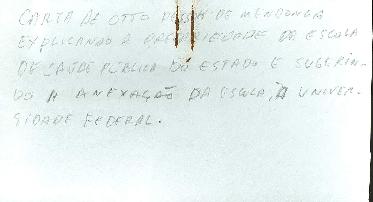 CARTA DE OTTO PESSOA DE MENDONÇA
EXPLICANDO A DA ESCOLA
DE SAÚDE PÚBLICA DO ESTADO E SUGERIN-
DO A ANEXAÇÃO DA ESCOLA, À UNIVER-
SIDADE FEDERAL.